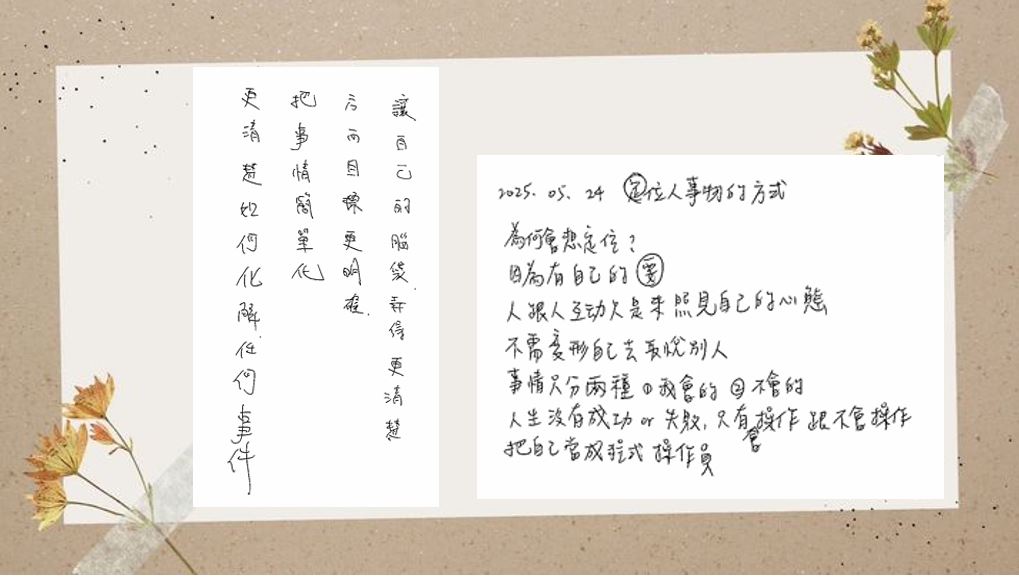 讓自己的腦袋、音更清楚
方向目標更明確.
把事情簡單化
更清楚如何化解任何事件
2025. 05. 24 定位人事物的方式
為何會想定位?
因為有自己的要
人跟人互动只是來照見自己的心態
不需變形自己去取悅別人
事情只分兩種 ①我會的 ②不會的
人生沒有成功 or 失敗, 只有會操作 跟不會操作
把自己當成程式 操作員